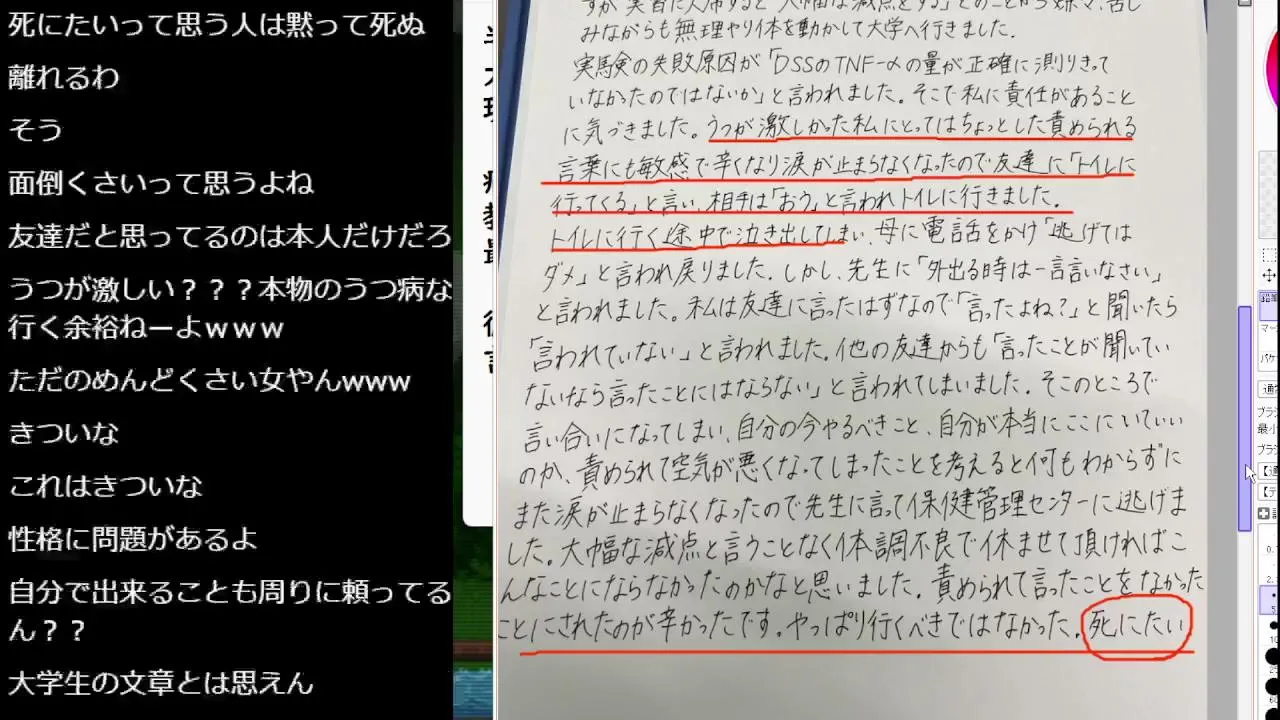 死にたいって思う人は黙って死ぬ
離れるわ
そう
面倒くさいって思うよね
友達だと思ってるのは本人だけだろ
うつが激しい？？？本物のうつ病な
行く余裕ねーよｗｗｗ
ただのめんどくさい女やんwww
きついな
これはきついな
性格に問題があるよ
自分で出来ることも周りに頼ってる
ん？？
大学生の文章とは思えん
みながらも無理やり体を動かして大学へ行きました.
実験の失敗原因が「DSSのTNF-αの量が正確に測りきって
いなかったのではないか」と言われました。そこで私に責任があること
に気づきました。うつが激しかった私にとってはちょっとした責められる
言葉にも敏感で辛くなり涙が止まらなくなったので友達に「トイレに
行ってくる」と言い、相手は「おう」と言われトイレに行きました.
トイレに行く途中で泣き出してしまい、母に電話をかけ「逃げては
ダメ」と言われ戻りました. しかし、先生に「外出る時は一言言いなさい」
と言われました。私は友達に言ったはずなので「言ったよね?」と聞いたら
「言われていない」と言われました. 他の友達からも「言ったことが聞いてい
ないなら言ったことにはならない」と言われてしまいました. そこのところで
言い合いになってしまい、自分の今やるべきこと、自分が本当にここにいていい
のか、責められて空気が悪くなってしまったことを考えると何もわからずに
また涙が止まらなくなったので先生に言って保健管理センターに逃げま
した。大幅な減点と言うことなく体調不良で休ませて頂ければこ
んなことにならなかったのかなと思いました. 責められて言ったことをなかった
ことにされたのが辛かったです。やっぱり行くべきではなかった. 死にたい